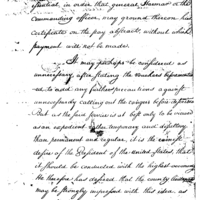 effected, in order that general Harmar or the
commanding officer may ground thereon his
certificates on the pay abstracts without which
payment will not be made.
It may perhaps be considered as
unnecessary after stating the
to use any further precautions against
unnecessarily calling out the rangers before
But as the said force is at best only to be viewed
as an expedient rather temporary and
than permanent and regular, it is the
desire of the President of the United States that
it should be conducted with the highest economy.
He therefore has desired that the county lieutenants
may be strongly impressed with this idea, as